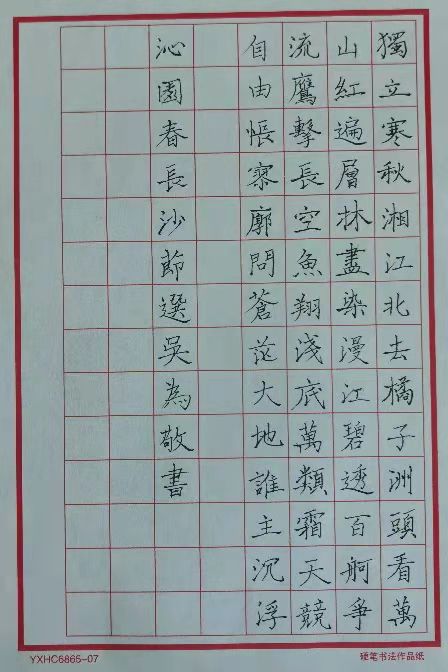 獨立寒秋湘江北去橘子洲頭看萬
山紅遍層林盡染漫江碧透百舸爭
流鷹擊長空魚翔淺底萬類霜天競
自由悵寥廓問蒼茫大地誰主沉浮
沁園春長沙節選吳為敬書
YXHC6865-07
硬笔书法作品纸